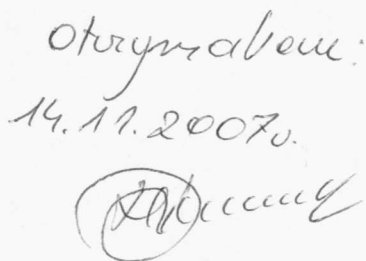 otrzymałem:
14.11.2007r.